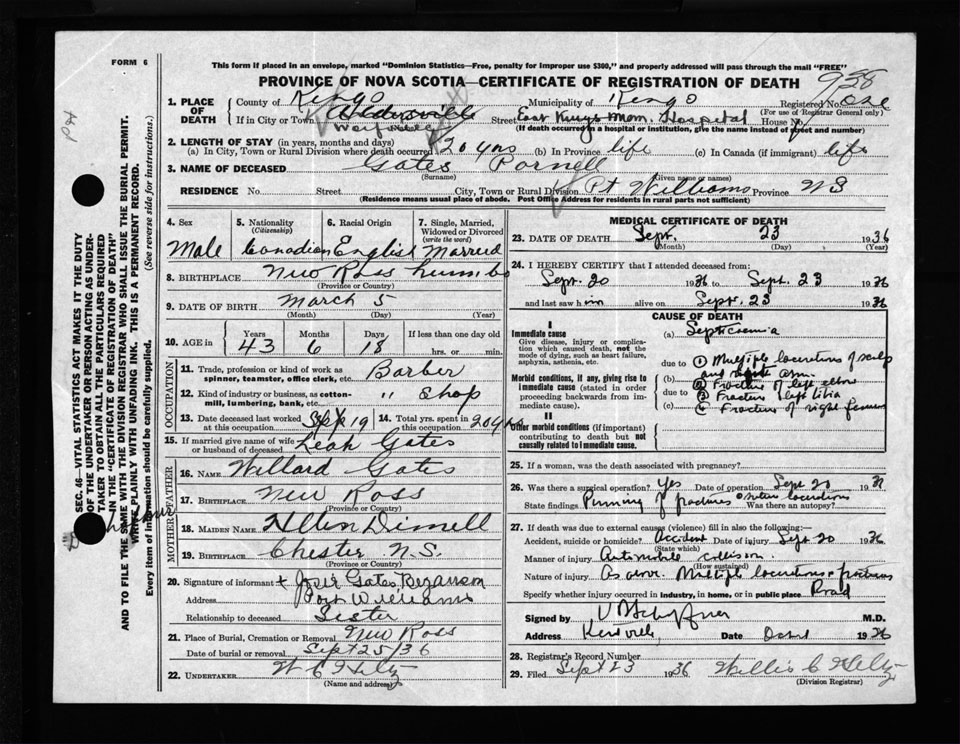 FORM 6
This form if placed in an envelope, marked "Dominion Statistics—Free, penalty for improper use $300," and properly addressed will pass through the mail "FREE"
PROVINCE OF NOVA SCOTIA—CERTIFICATE OF REGISTRATION OF DEATH
938
1. PLACE OF DEATH County of Kings Municipality of Kings Registered No. One
(For use of Registrar General only)
If in City or Town Wolfville Street East Kings Mem. Hospital House No.
(If death occurred in a hospital or institution, give the name instead of street and number)
2. LENGTH OF STAY (in years, months and days)
(a) In City, Town or Rural Division where death occurred 20 yrs (b) In Province life (c) In Canada (if immigrant) life
3. NAME OF DECEASED Gates Parnell
(Surname) (Given name or names)
RESIDENCE No. Street City, Town or Rural Division Pt Williams Province NS
(Residence means usual place of abode. Post Office Address for residents in rural parts not sufficient)
4. Sex 5. Nationality (Citizenship) 6. Racial Origin 7. Single, Married, Widowed or Divorced (write the word)
Male Canadian English Married
8. BIRTHPLACE New Ross Lunenbg
(Province or Country)
9. DATE OF BIRTH March 5
(Month) (Day) (Year)
10. AGE in Years Months Days If less than one day old
43 6 18 hrs. or min.
OCCUPATION
11. Trade, profession or kind of work as spinner, teamster, office clerk, etc. Barber
12. Kind of industry or business, as cotton-mill, lumbering, bank, etc. " Shop
13. Date deceased last worked at this occupation Sept 19 14. Total yrs. spent in this occupation 20 yrs
15. If married give name of wife or husband of deceased Leah Gates
FATHER
16. NAME Willard Gates
17. BIRTHPLACE New Ross
(Province or Country)
MOTHER
18. MAIDEN NAME
19. BIRTHPLACE Chester N.S.
(Province or Country)
20. Signature of informant + Josie Gates Bezanson
Address Port Williams
Relationship to deceased Sister
21. Place of Burial, Cremation or Removal New Ross
Date of burial or removal Sept 25/36
22. UNDERTAKER W C Hiltz
(Name and address)
MEDICAL CERTIFICATE OF DEATH
23. DATE OF DEATH Sept. 23 1936
(Month) (Day) (Year)
24. I HEREBY CERTIFY that I attended deceased from
Sept. 20 1936 to Sept. 23 1936
and last saw him alive on Sept. 23 1936
CAUSE OF DEATH
I
Immediate cause
Give disease, injury or complication which caused death, not the mode of dying, such as heart failure, asphyxia, asthenia, etc.
(a) Septicaemia
due to (1) Multiple lacerations of scalp
and arm.
Morbid conditions, if any, giving rise to immediate cause (stated in order proceeding backwards from immediate cause).
(b) Fracture of left elbow
due to Fracture left tibia
(c) Fracture of right femur
II
Other morbid conditions (if important) contributing to death but not causally related to immediate cause.
25. If a woman, was the death associated with pregnancy?
26. Was there a surgical operation? Yes Date of operation Sept 20 1936
State findings Pinning of fractures Suture lacerations Was there an autopsy?
27. If death was due to external causes (violence) fill in also the following:—
Accident, suicide or homicide? Accident Date of injury Sept 20 1936
(State which)
Manner of injury Automobile collision.
(How sustained)
Nature of injury As above. Multiple lacerations + fractures
Specify whether injury occurred in industry, in home, or in public place Road
Signed by M.D.
Address Kentville, Date Oct 1 1936
28. Registrar's Record Number
29. Filed Sept 23 1936 Willis C Hiltz
(Division Registrar)
SEC. 46—VITAL STATISTICS ACT MAKES IT THE DUTY OF THE UNDERTAKER OR PERSON ACTING AS UNDERTAKER TO OBTAIN ALL THE PARTICULARS REQUIRED IN THE "CERTIFICATE OF REGISTRATION OF DEATH" AND TO FILE THE SAME WITH THE DIVISION REGISTRAR WHO SHALL ISSUE THE BURIAL PERMIT.
WRITE PLAINLY WITH UNFADING INK. THIS IS A PERMANENT RECORD.
Every item of information should be carefully supplied. (See reverse side for instructions.)